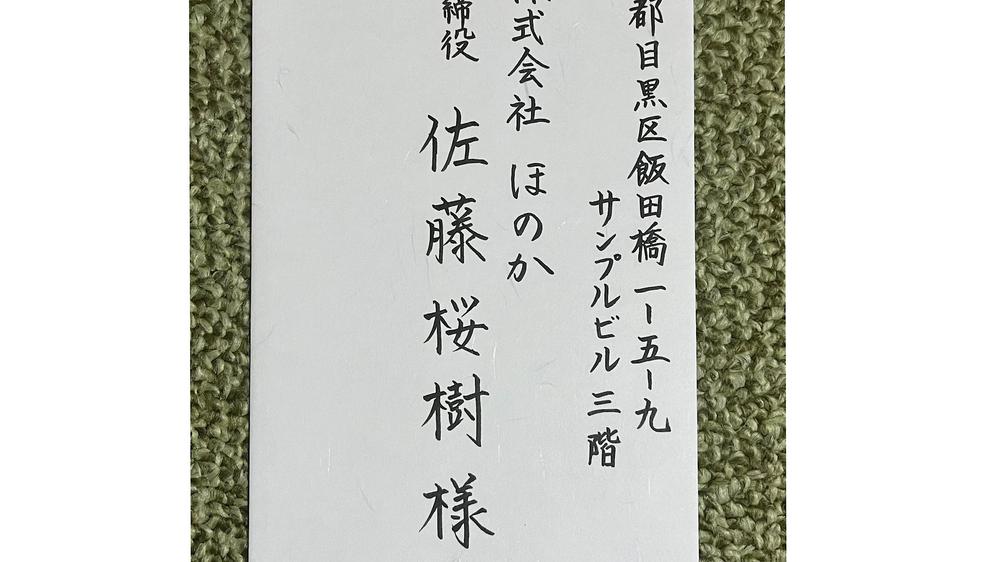 都目黒区飯田橋一ー五ー九
サンプルビル三階
式会社 ほのか
締役 佐藤桜樹様